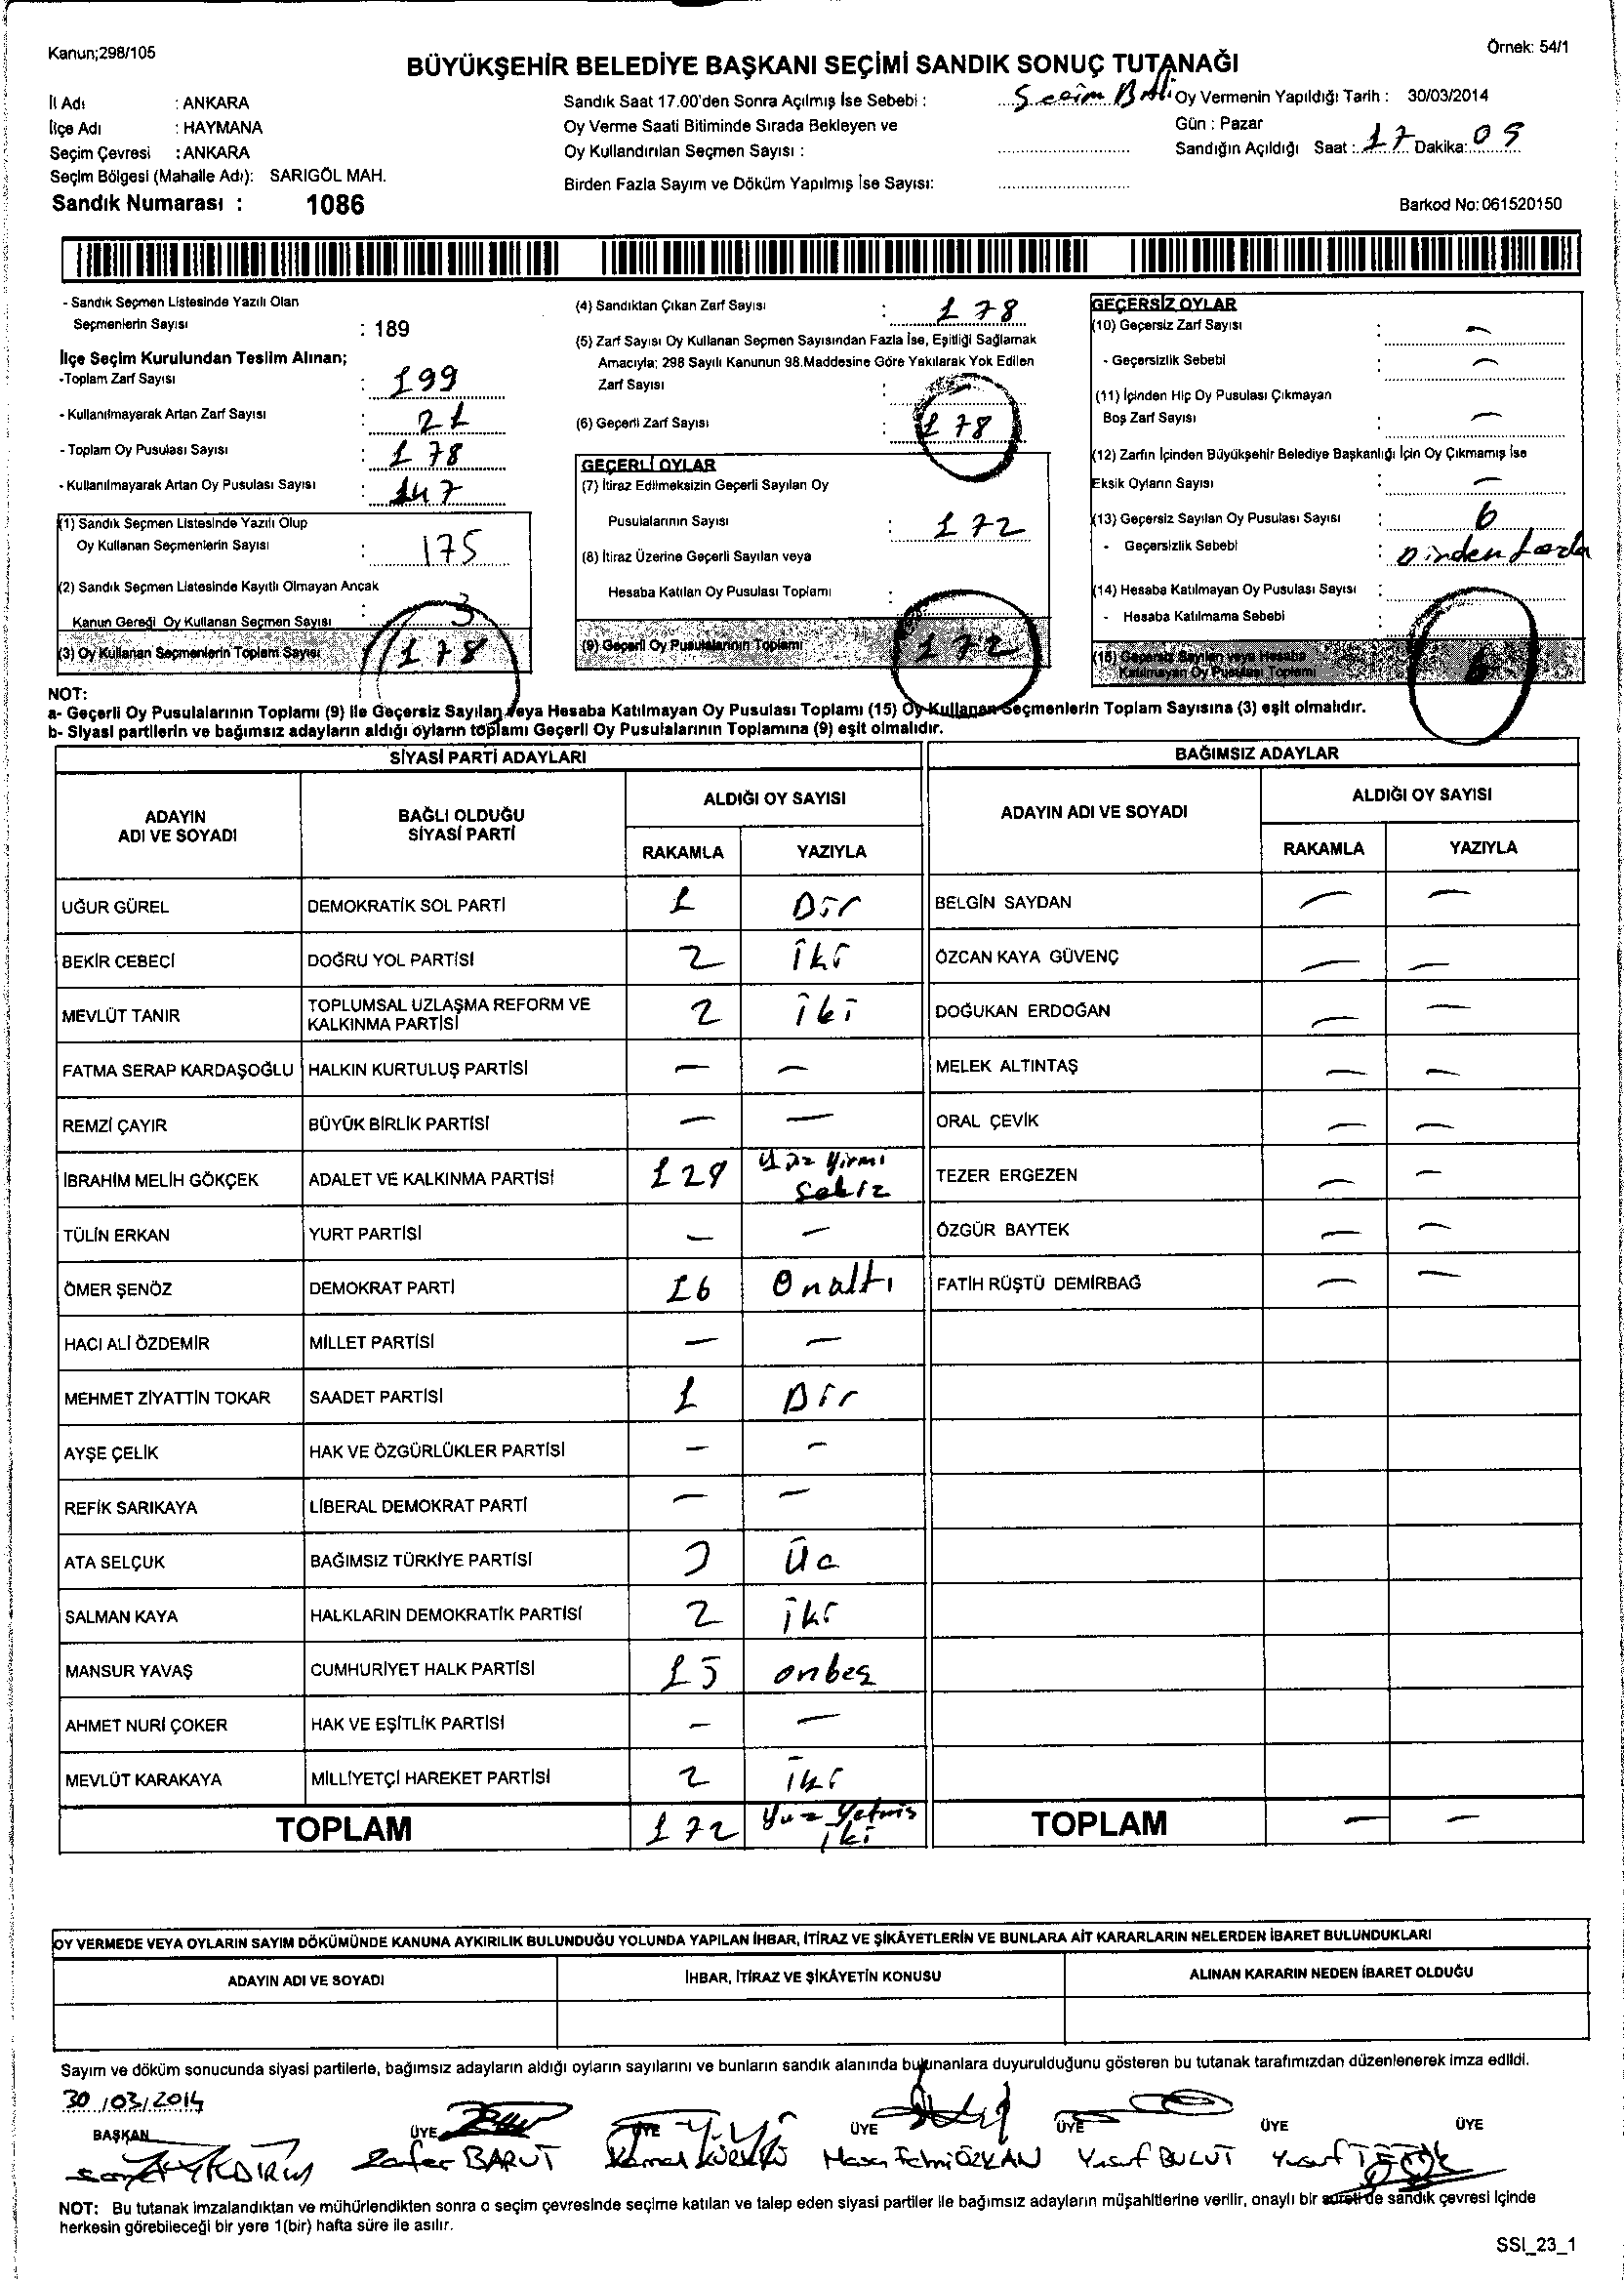 Kanun;298/105
Örnek: 54/1
BÜYÜKŞEHİR BELEDİYE BAŞKANI SEÇİMİ SANDIK SONUÇ TUTANAĞI
İl Adı : ANKARA
İlçe Adı : HAYMANA
Seçim Çevresi : ANKARA
Seçim Bölgesi (Mahalle Adı): SARIGÖL MAH.
Sandık Numarası : 1086
Sandık Saat 17.00'den Sonra Açılmış İse Sebebi : Seçim
Oy Verme Saati Bitiminde Sırada Bekleyen ve
Oy Kullandırılan Seçmen Sayısı :
Birden Fazla Sayım ve Döküm Yapılmış İse Sayısı:
Oy Vermenin Yapıldığı Tarih : 30/03/2014
Gün : Pazar
Sandığın Açıldığı Saat : 17 Dakika: 05
Barkod No: 061520150
- Sandık Seçmen Listesinde Yazılı Olan
Seçmenlerin Sayısı : 189
İlçe Seçim Kurulundan Teslim Alınan;
-Toplam Zarf Sayısı : 199
- Kullanılmayarak Artan Zarf Sayısı : 21
- Toplam Oy Pusulası Sayısı : 178
- Kullanılmayarak Artan Oy Pusulası Sayısı : 147
(1) Sandık Seçmen Listesinde Yazılı Olup
Oy Kullanan Seçmenlerin Sayısı : 175
(2) Sandık Seçmen Listesinde Kayıtlı Olmayan Ancak
Kanun Gereği Oy Kullanan Seçmen Sayısı : 3
(3) Oy Kullanan Seçmenlerin Toplam Sayısı : 178
(4) Sandıktan Çıkan Zarf Sayısı : 178
(5) Zarf Sayısı Oy Kullanan Seçmen Sayısından Fazla İse, Eşitliği Sağlamak
Amacıyla; 298 Sayılı Kanunun 98.Maddesine Göre Yakılarak Yok Edilen
Zarf Sayısı :
(6) Geçerli Zarf Sayısı : 178
GEÇERLİ OYLAR
(7) İtiraz Edilmeksizin Geçerli Sayılan Oy
Pusulalarının Sayısı : 172
(8) İtiraz Üzerine Geçerli Sayılan veya
Hesaba Katılan Oy Pusulası Toplamı :
(9) Geçerli Oy Pusulalarının Toplamı : 172
GEÇERSİZ OYLAR
(10) Geçersiz Zarf Sayısı : —
- Geçersizlik Sebebi : —
(11) İçinden Hiç Oy Pusulası Çıkmayan
Boş Zarf Sayısı : —
(12) Zarfın İçinden Büyükşehir Belediye Başkanlığı İçin Oy Çıkmamış İse
Eksik Oyların Sayısı : —
(13) Geçersiz Sayılan Oy Pusulası Sayısı : 6
- Geçersizlik Sebebi : Birden fazla
(14) Hesaba Katılmayan Oy Pusulası Sayısı :
- Hesaba Katılmama Sebebi :
(15) Geçersiz Sayılan veya Hesaba
Katılmayan Oy Pusulası Toplamı : 6
NOT:
a- Geçerli Oy Pusulalarının Toplamı (9) ile Geçersiz Sayılan veya Hesaba Katılmayan Oy Pusulası Toplamı (15) Oy Kullanan Seçmenlerin Toplam Sayısına (3) eşit olmalıdır.
b- Siyasi partilerin ve bağımsız adayların aldığı oyların toplamı Geçerli Oy Pusulalarının Toplamına (9) eşit olmalıdır.
SİYASİ PARTİ ADAYLARI BAĞIMSIZ ADAYLAR
ADAYIN ADI VE SOYADI BAĞLI OLDUĞU SİYASİ PARTİ ALDIĞI OY SAYISI ADAYIN ADI VE SOYADI ALDIĞI OY SAYISI
RAKAMLA YAZIYLA RAKAMLA YAZIYLA
UĞUR GÜREL DEMOKRATİK SOL PARTİ 1 Bir BELGİN SAYDAN — —
BEKİR CEBECİ DOĞRU YOL PARTİSİ 2 iki ÖZCAN KAYA GÜVENÇ — —
MEVLÜT TANIR TOPLUMSAL UZLAŞMA REFORM VE KALKINMA PARTİSİ 2 iki DOĞUKAN ERDOĞAN — —
FATMA SERAP KARDAŞOĞLU HALKIN KURTULUŞ PARTİSİ — — MELEK ALTINTAŞ — —
REMZİ ÇAYIR BÜYÜK BİRLİK PARTİSİ — — ORAL ÇEVİK — —
İBRAHİM MELİH GÖKÇEK ADALET VE KALKINMA PARTİSİ 128 yüz yirmi sekiz TEZER ERGEZEN — —
TÜLİN ERKAN YURT PARTİSİ — — ÖZGÜR BAYTEK — —
ÖMER ŞENÖZ DEMOKRAT PARTİ 16 Onaltı FATİH RÜŞTÜ DEMİRBAĞ — —
HACI ALİ ÖZDEMİR MİLLET PARTİSİ — —
MEHMET ZİYATTİN TOKAR SAADET PARTİSİ 1 Bir
AYŞE ÇELİK HAK VE ÖZGÜRLÜKLER PARTİSİ — —
REFİK SARIKAYA LİBERAL DEMOKRAT PARTİ — —
ATA SELÇUK BAĞIMSIZ TÜRKİYE PARTİSİ 3 Üc
SALMAN KAYA HALKLARIN DEMOKRATİK PARTİSİ 2 iki
MANSUR YAVAŞ CUMHURİYET HALK PARTİSİ 15 onbeş
AHMET NURİ ÇOKER HAK VE EŞİTLİK PARTİSİ — —
MEVLÜT KARAKAYA MİLLİYETÇİ HAREKET PARTİSİ 2 iki
TOPLAM 172 Yüz Yetmiş iki TOPLAM — —
OY VERMEDE VEYA OYLARIN SAYIM DÖKÜMÜNDE KANUNA AYKIRILIK BULUNDUĞU YOLUNDA YAPILAN İHBAR, İTİRAZ VE ŞİKÂYETLERİN VE BUNLARA AİT KARARLARIN NELERDEN İBARET BULUNDUKLARI
ADAYIN ADI VE SOYADI İHBAR, İTİRAZ VE ŞİKÂYETİN KONUSU ALINAN KARARIN NEDEN İBARET OLDUĞU
Sayım ve döküm sonucunda siyasi partilerle, bağımsız adayların aldığı oyların sayılarını ve bunların sandık alanında bulunanlara duyurulduğunu gösteren bu tutanak tarafımızdan düzenlenerek imza edildi.
30/03/2014
BAŞKAN ÜYE ÜYE ÜYE ÜYE ÜYE ÜYE
YILDIRIM Zafer BARUT Kemal Hasan Fehmi ÖZKAN Yusuf BULUT Yusuf
NOT: Bu tutanak imzalandıktan ve mühürlendikten sonra o seçim çevresinde seçime katılan ve talep eden siyasi partiler ile bağımsız adayların müşahitlerine verilir, onaylı bir sureti de sandık çevresi içinde
herkesin görebileceği bir yere 1(bir) hafta süre ile asılır.
SSI_23_1